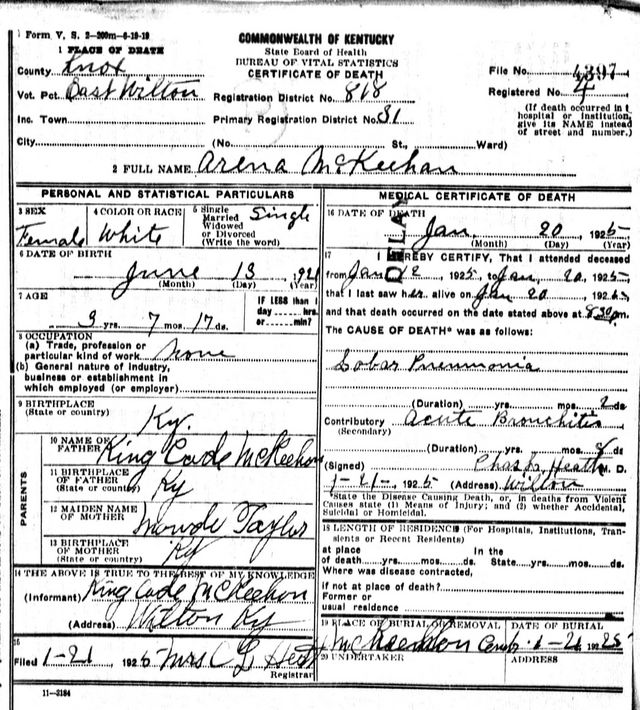 Form V. S. 2–200m–6-19-19
1 PLACE OF DEATH
County Knox
Vot. Pct. East Wilton
Inc. Town
City
COMMONWEALTH OF KENTUCKY
State Board of Health
BUREAU OF VITAL STATISTICS
CERTIFICATE OF DEATH
Registration District No. 818
Primary Registration District No. 31
(No. St., Ward)
File No. 4397
Registered No. 4
(If death occurred in a
hospital or institution,
give its NAME instead
of street and number.)
2 FULL NAME Arena McKeehan
PERSONAL AND STATISTICAL PARTICULARS
3 SEX
Female
4 COLOR OR RACE
White
5 Single
Married
Widowed
or Divorced
(Write the word)
Single
6 DATE OF BIRTH
June 13, 1921
(Month) (Day) (Year)
7 AGE
3 yrs. 7 mos. 17 ds.
IF LESS than 1
day hrs.
or min?
8 OCCUPATION
(a) Trade, profession or
particular kind of work none
(b) General nature of industry,
business or establishment in
which employed (or employer)
9 BIRTHPLACE
(State or country)
Ky.
PARENTS
10 NAME OF
FATHER King Cade McKeehon
11 BIRTHPLACE
OF FATHER
(State or country) Ky
12 MAIDEN NAME
OF MOTHER Taylor
13 BIRTHPLACE
OF MOTHER
(State or country) Ky
14 THE ABOVE IS TRUE TO THE BEST OF MY KNOWLEDGE
(Informant) King Cade McKeehon
(Address) Wilton Ky
15
Filed 1-21, 1925 Mrs C G
Registrar
11—3184
MEDICAL CERTIFICATE OF DEATH
DELAY
16 DATE OF DEATH
Jan 20, 1925
(Month) (Day) (Year)
17 I HEREBY CERTIFY, That I attended deceased
from Jan 2 1925, to Jan, 20, 1925,
that I last saw her alive on Jan 20, 1925,
and that death occurred on the date stated above at 8:30 pm.
The CAUSE OF DEATH* was as follows:
Lobar Pneumonia
(Duration) yrs. mos. 2 ds.
Contributory Acute Bronchitis
(Secondary)
(Duration) yrs. mos. ds.
(Signed) Heath M. D.
1-21-, 1925 (Address) Wilton
*State the Disease Causing Death, or, in deaths from Violent
Causes state (1) Means of Injury; and (2) whether Accidental,
Suicidal or Homicidal.
18 LENGTH OF RESIDENCE (For Hospitals, Institutions, Tran-
sients or Recent Residents)
at place In the
of death yrs. mos. ds. State yrs. mos. ds.
Where was disease contracted,
if not at place of death?
Former or
usual residence
19 PLACE OF BURIAL OR REMOVAL
DATE OF BURIAL
1-21, 1925
20 UNDERTAKER
ADDRESS